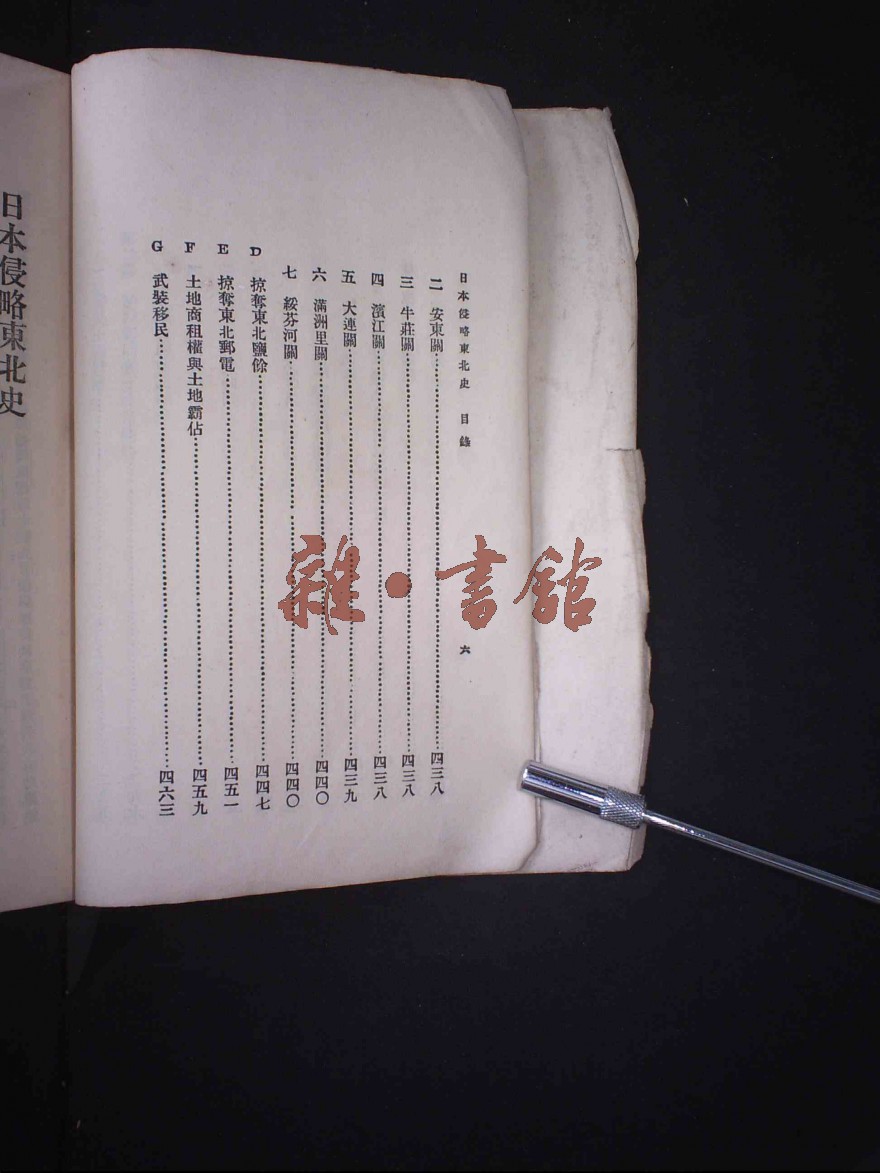 日本侵略東北史 目錄 六
二 安東關……四三八
三 牛莊關……四三八
四 濱江關……四三八
五 大連關……四三九
六 滿洲里關……四四〇
七 綏芬河關……四四〇
D 掠奪東北鹽餘……四四七
E 掠奪東北郵電……四五一
F 土地商租權與土地霸佔……四五九
G 武裝移民……四六三
日本侵略東北史
雜·書館